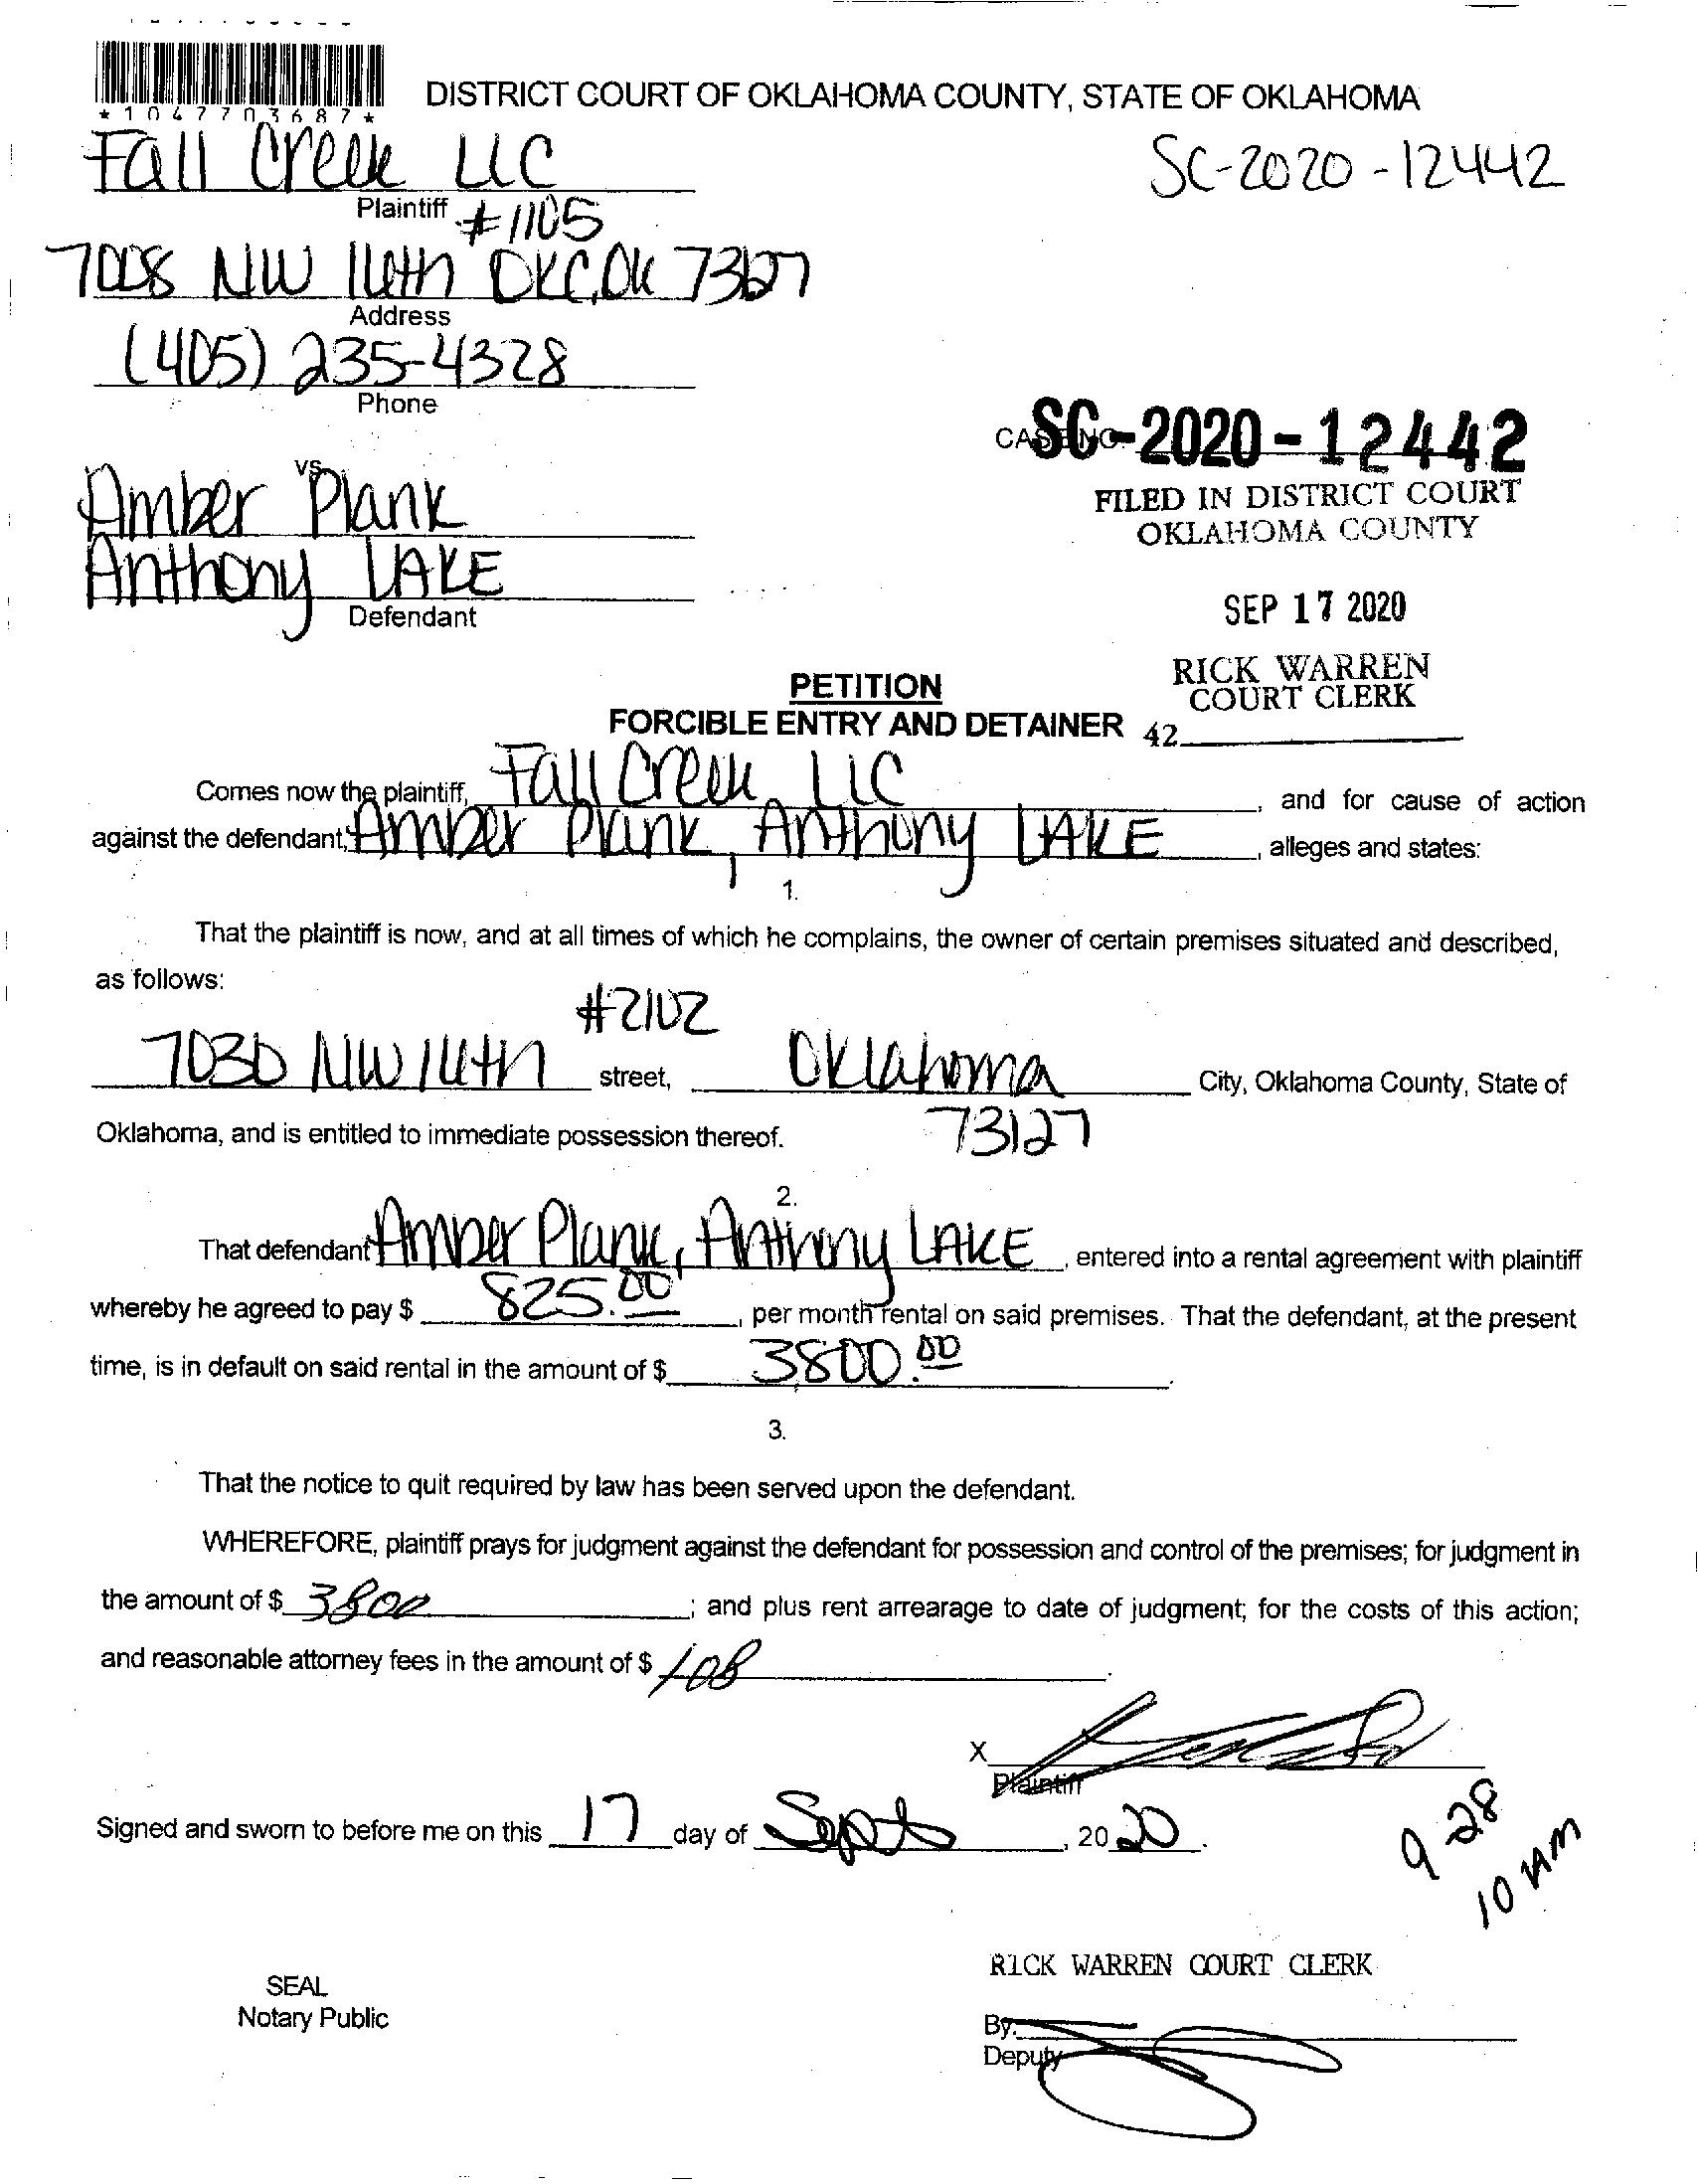 *1047703687*
DISTRICT COURT OF OKLAHOMA COUNTY, STATE OF OKLAHOMA
Fall Creek LLC
SC-2020-12442
Plaintiff #1105
7008 NW 16th OKC, OK 73127
Address
(405) 235-4328
Phone
CASE NO. SC-2020-12442
vs.
Amber Plank
FILED IN DISTRICT COURT
OKLAHOMA COUNTY
Anthony LAKE
Defendant
SEP 17 2020
RICK WARREN
COURT CLERK
PETITION
FORCIBLE ENTRY AND DETAINER
42
Comes now the plaintiff, Fall Creek LLC, and for cause of action
against the defendant, Amber Plank, Anthony LAKE, alleges and states:
1.
That the plaintiff is now, and at all times of which he complains, the owner of certain premises situated and described,
as follows:
#2102
7030 NW 16th street, Oklahoma City, Oklahoma County, State of
Oklahoma, and is entitled to immediate possession thereof. 73127
2.
That defendant Amber Plank, Anthony LAKE, entered into a rental agreement with plaintiff
whereby he agreed to pay $ 825.00, per month rental on said premises. That the defendant, at the present
time, is in default on said rental in the amount of $ 3,800.00.
3.
That the notice to quit required by law has been served upon the defendant.
WHEREFORE, plaintiff prays for judgment against the defendant for possession and control of the premises; for judgment in
the amount of $ 3800; and plus rent arrearage to date of judgment; for the costs of this action;
and reasonable attorney fees in the amount of $ 108.
X
Plaintiff
Signed and sworn to before me on this 17 day of Sept, 2020.
9-28
10 AM
RICK WARREN COURT CLERK
SEAL
Notary Public
By:
Deputy